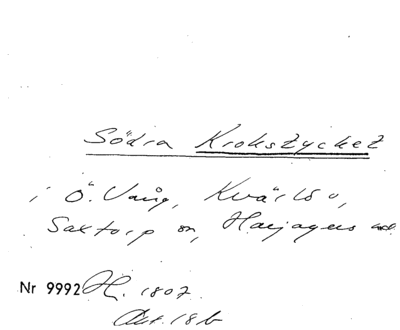 Södra Krokstycket
i Ö. Vång, Kvärlöv,
Saxtorp sn, Harjagers hd.
Nr 9992 H. 1802.
Akt. 18b